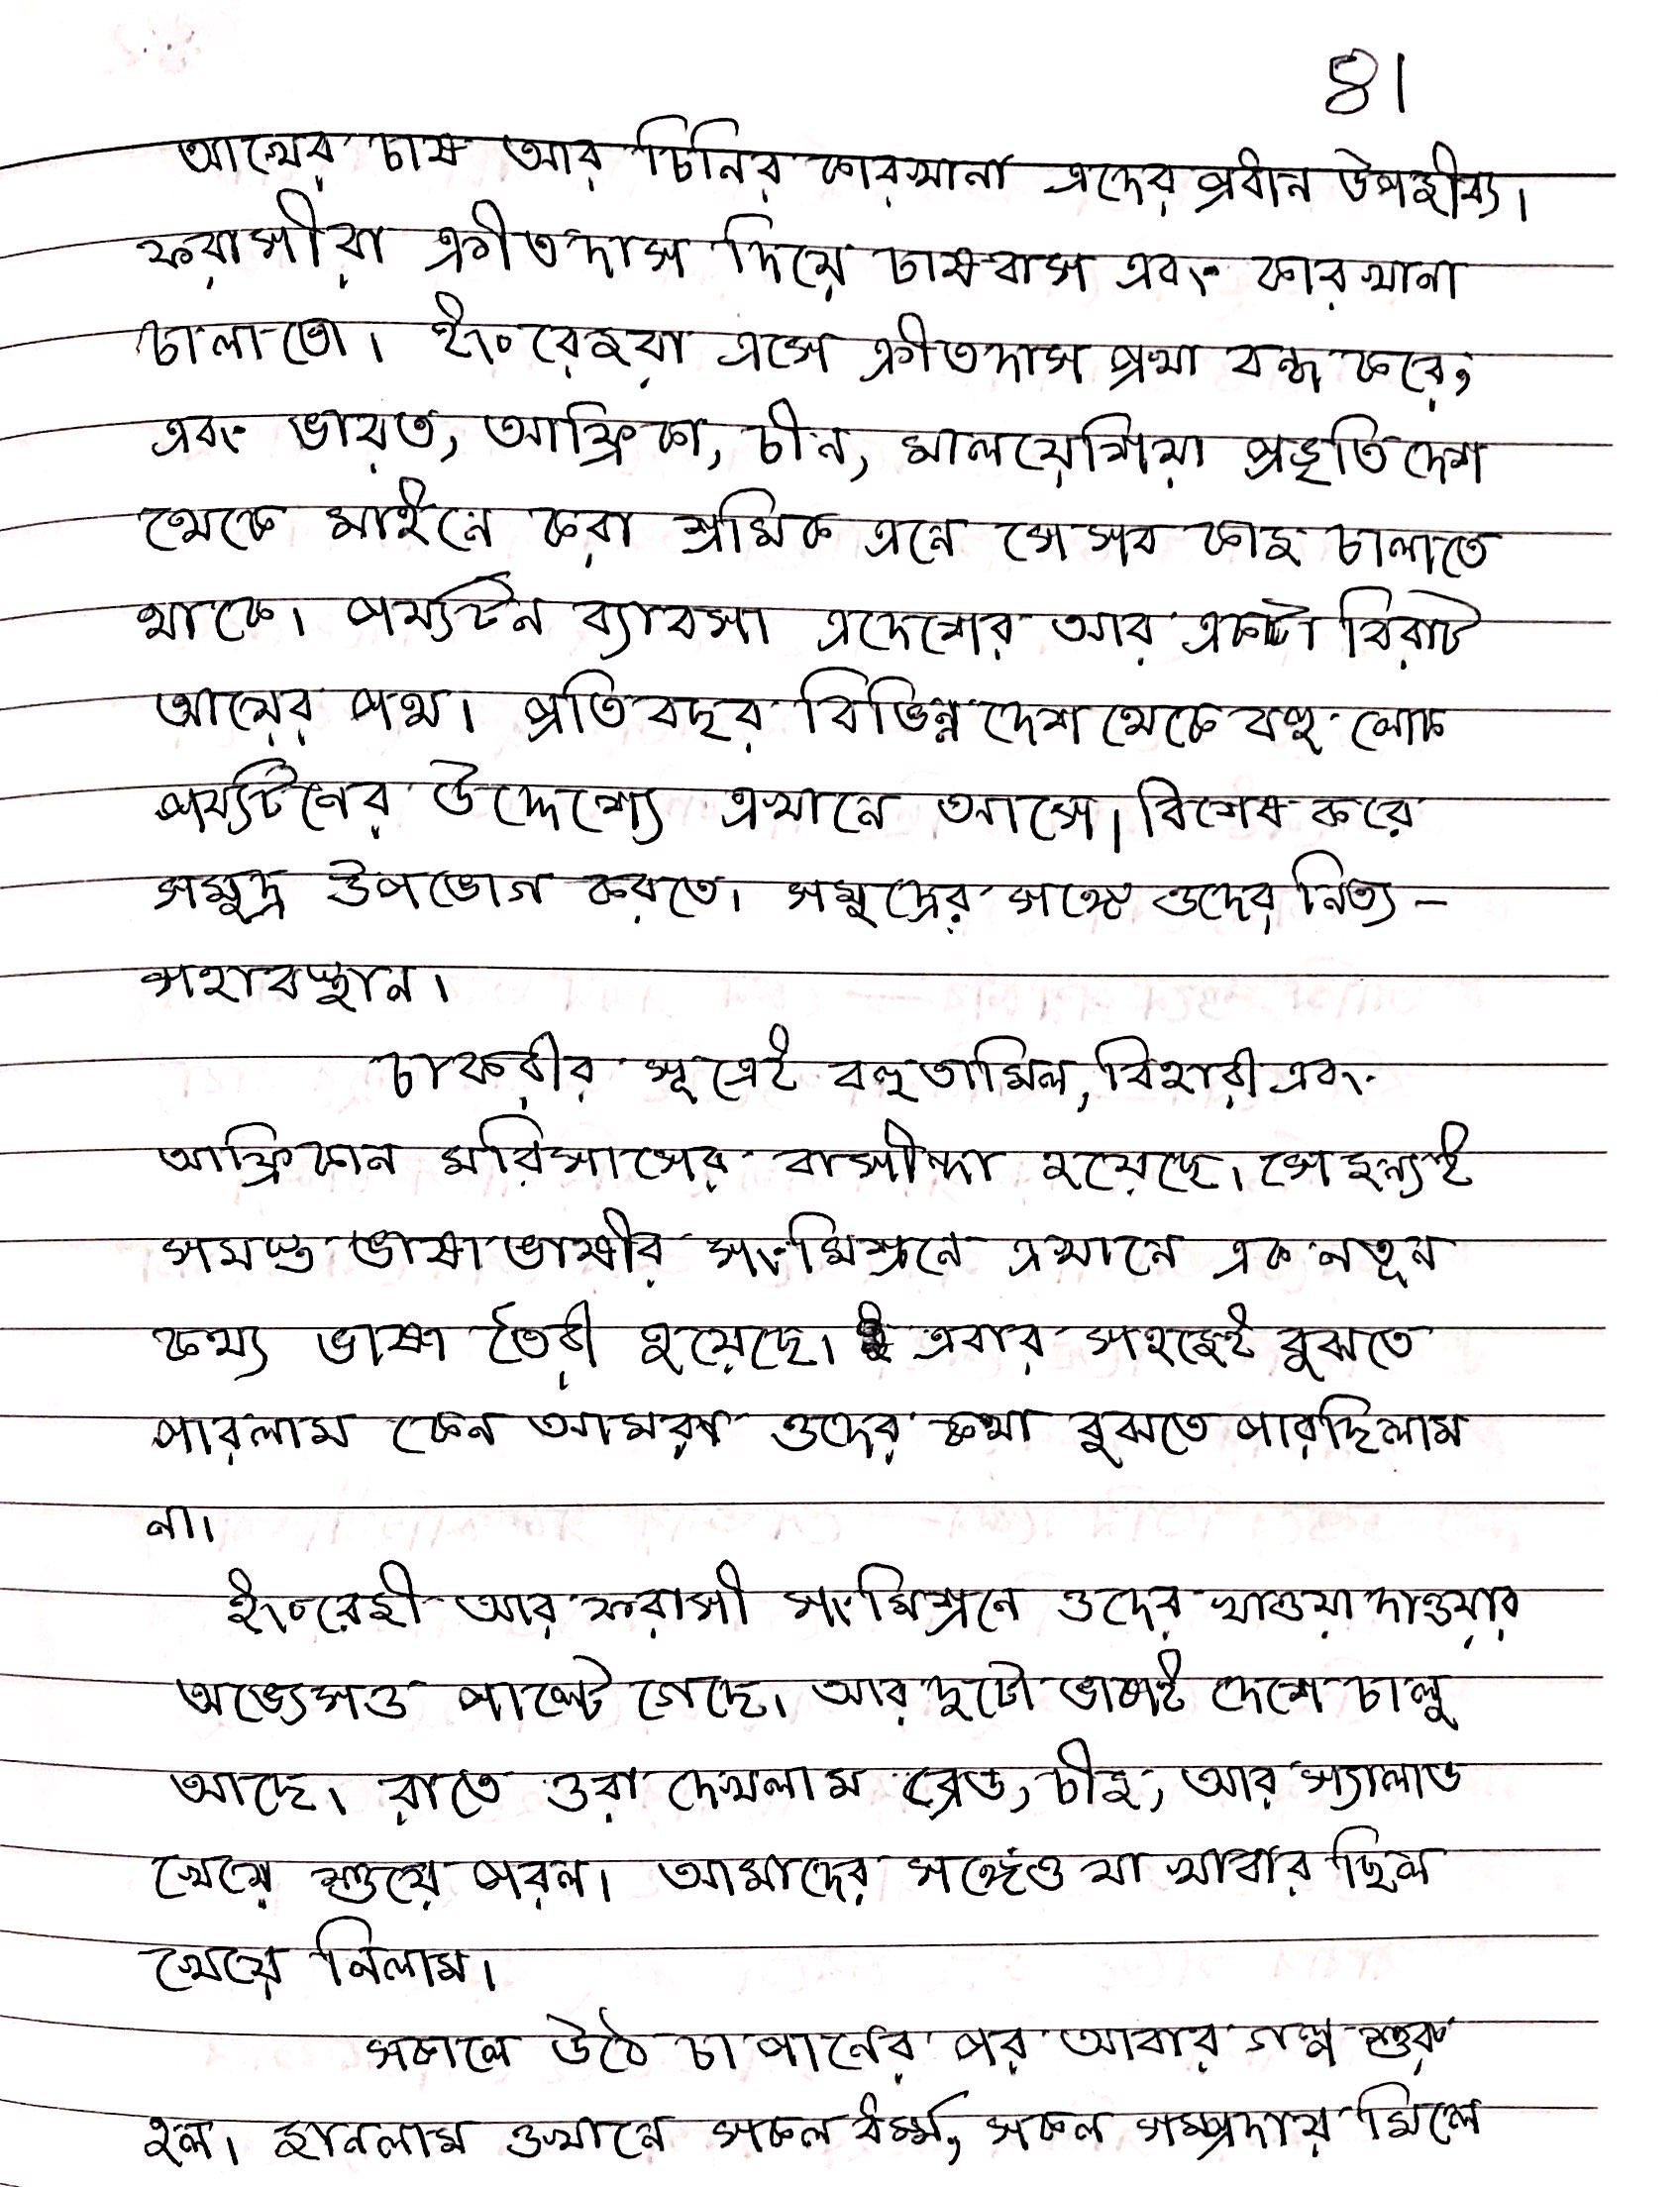 ৪১
আখের চাষ আর চিনির কারখানা এদের প্রধান উপজীব্য।
ফরাসীরা ক্রীতদাস দিয়ে চাষবাস এবং কারখানা
চালাতো। ইংরেজরা এসে ক্রীতদাস প্রথা বন্ধ করে,
এবং ভারত, আফ্রিকা, চীন, মালয়েশিয়া প্রভৃতি দেশ
থেকে মাইনে করা শ্রমিক এনে সেসব কাজ চালাতে
থাকে। পর্য্যটন ব্যাবসা এদেশের আর একটা বিরাট
আয়ের পথ। প্রতি বছর বিভিন্ন দেশ থেকে বহু লোক
পর্য্যটনের উদ্দেশ্যে এখানে আসে। বিশেষ করে
সমুদ্র উপভোগ করতে। সমুদ্রের সঙ্গে ওদের নিত্য -
সহাবস্থান।
চাকরীর সূত্রেই বহু তামিল, বিহারী এবং
আফ্রিকান মরিসাসের বাসীন্দা হয়েছে। সেজন্যই
সমস্ত ভাষাভাষীর সংমিশ্রনে এখানে এক নতূন
কথ্য ভাষা তৈরী হয়েছে। এবার সহজেই বুঝতে
পারলাম কেন আমরা ওদের কথা বুঝতে পারছিলাম
না।
ইংরেজী আর ফরাসী সংমিশ্রনে ওদের খাওয়া দাওয়ার
অভ্যেসও পাল্টে গেছে। আর দুটো ভাষাই দেশে চালু
আছে। রাতে ওরা দেখলাম ব্রেড, চীজ, আর স্যালাড
খেয়ে শুয়ে পরল। আমাদের সঙ্গেও যা খাবার ছিল
খেয়ে নিলাম।
সকালে উঠে চা পানের পর আবার গল্প শুরু
হল। জানলাম ওখানে সকল ধর্ম্ম, সকল সম্প্রদায় মিলে